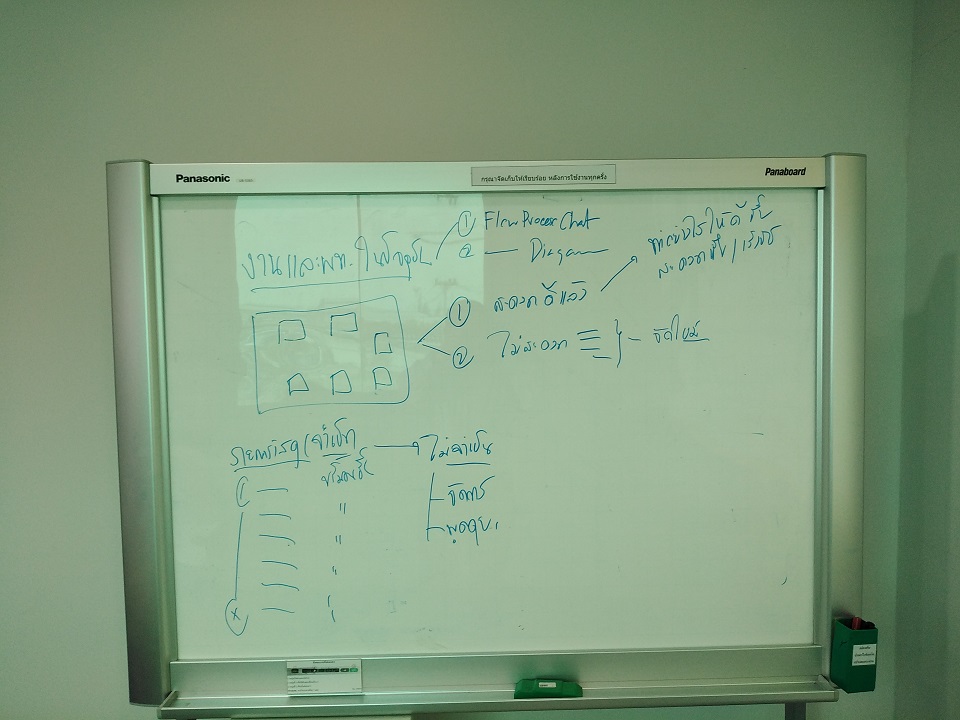 Panasonic
กรุณาจัดเก็บให้เรียบร้อย หลังการใช้งานทุกครั้ง
Panaboard
① Flow Process Chat
② — Diagram —
งานและพท. ในปัจจุบัน
① สะดวกดีแล้ว
ทำอย่างไรให้ดีขึ้น
สะดวกขึ้น / เร็วขึ้น
② ไม่สะดวก
จัดใหม่
รายการวัสดุ (จำเป็น
ไม่จำเป็น
①
"
จัดการ
"
พูดคุย
"
"
Ⓧ